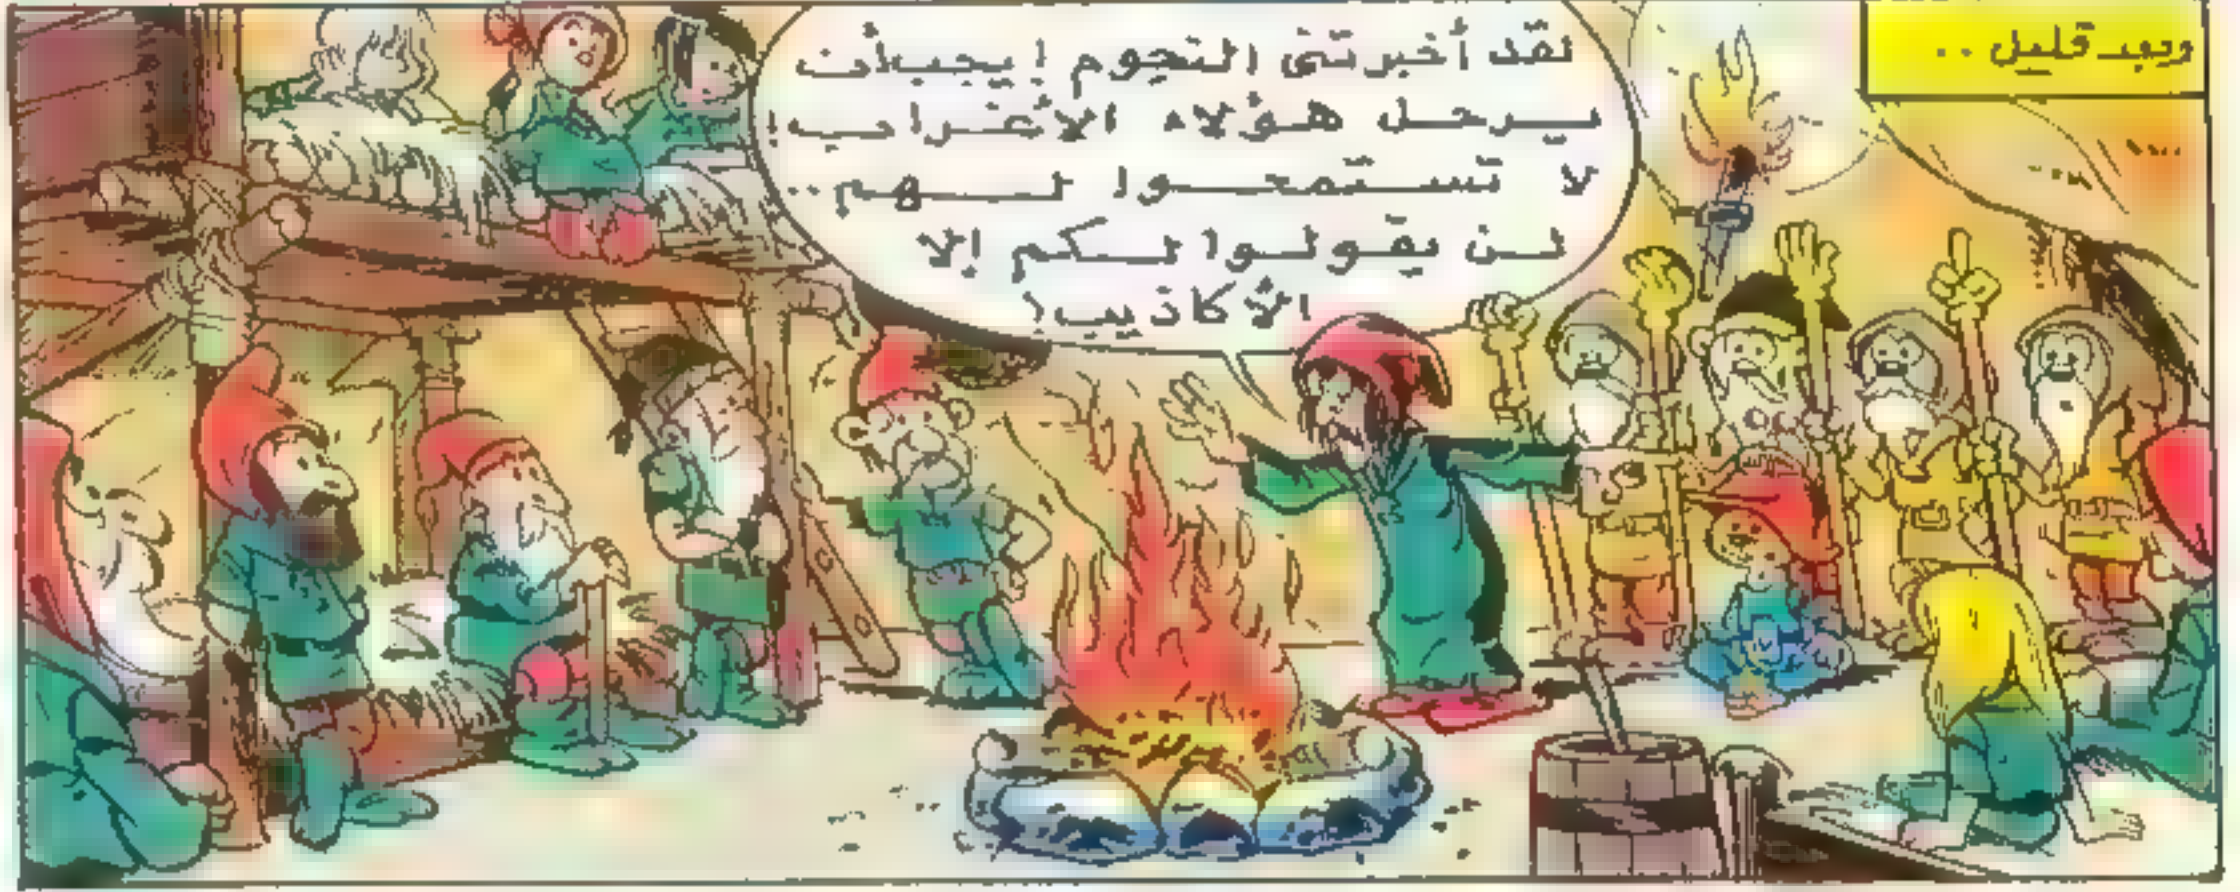 وبعد قليل ..
لقد أخبرتني النجوم ! يجب أن
يرحل هؤلاء الأغراب !
لا تستمعوا لهم ..
لن يقولوا لكم إلا
الأكاذيب !